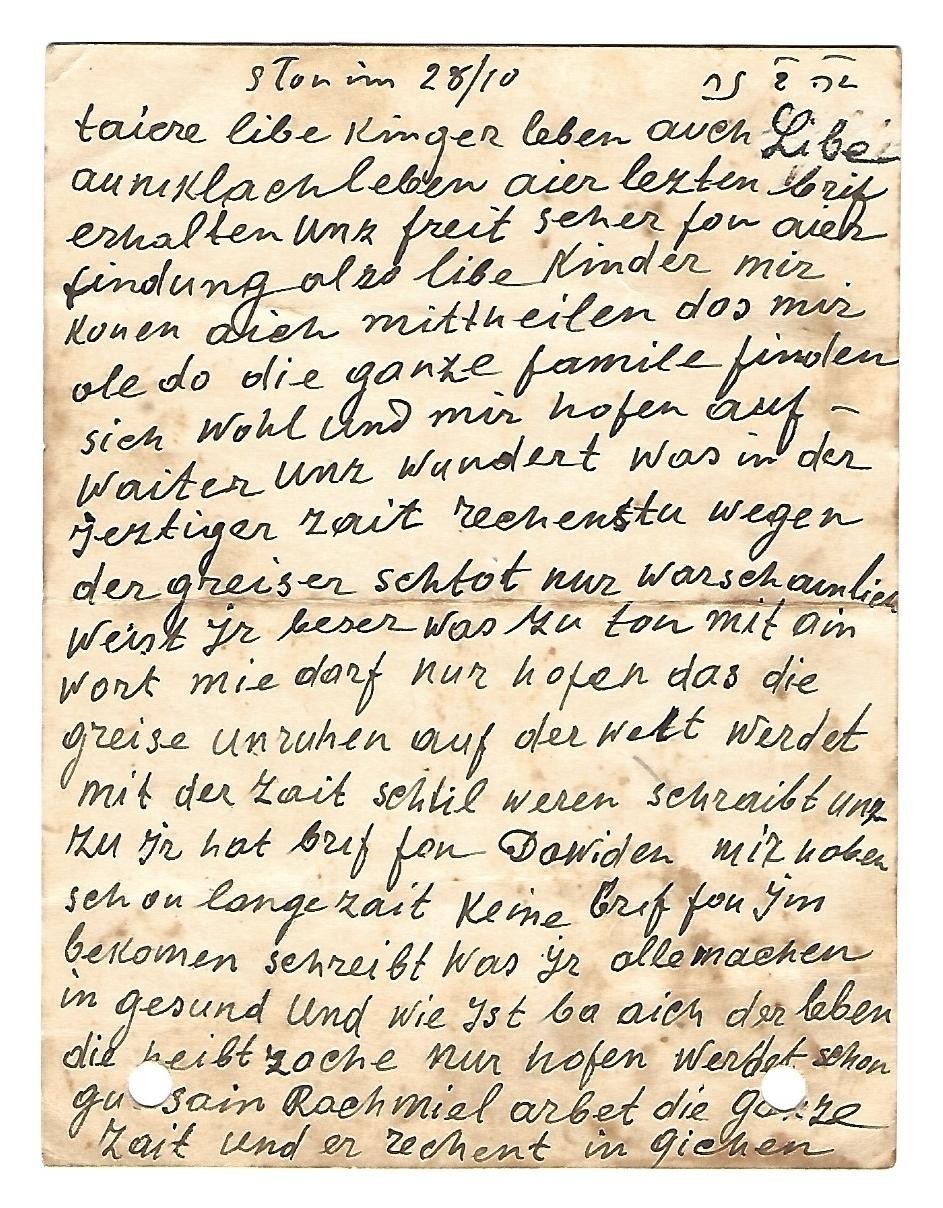 slonim 28/10
taiere libe Kinger leben auch Libe
auniklach leben aier lezten brif
erhalten unz freit seher fon aier
findung olzo libe Kinder mir
Konen aich mittheilen das mir
ole do die ganze famile finden
sich wohl und mir hofen auf –
waiter unz wundert was in der
jeztiger zait rechenstu wegen
der greiser schtot nur warschaunlich
weist jr beser was zu ton mit ain
wort mie darf nur hofen das die
greise unruhen auf der welt werdet
mit der zait schtil weren schraibt unz
zu jr hat brif fon Dowiden mir hoben
schon lange zait Keine brif fon jm
bekomen schreibt was jr alle machen
in gesund und wie jst ba aich der leben
die heibt zache nur hofen werdet schon
gu sain Rachmiel arbet die ganze
zait und er rechent in gichen